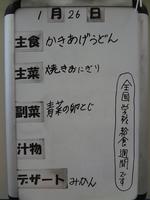 1月26日
主食 かきあげうどん
主菜 焼きおにぎり
副菜 青菜の卵とじ
汁物
デザート みかん
全国学校給食週間です